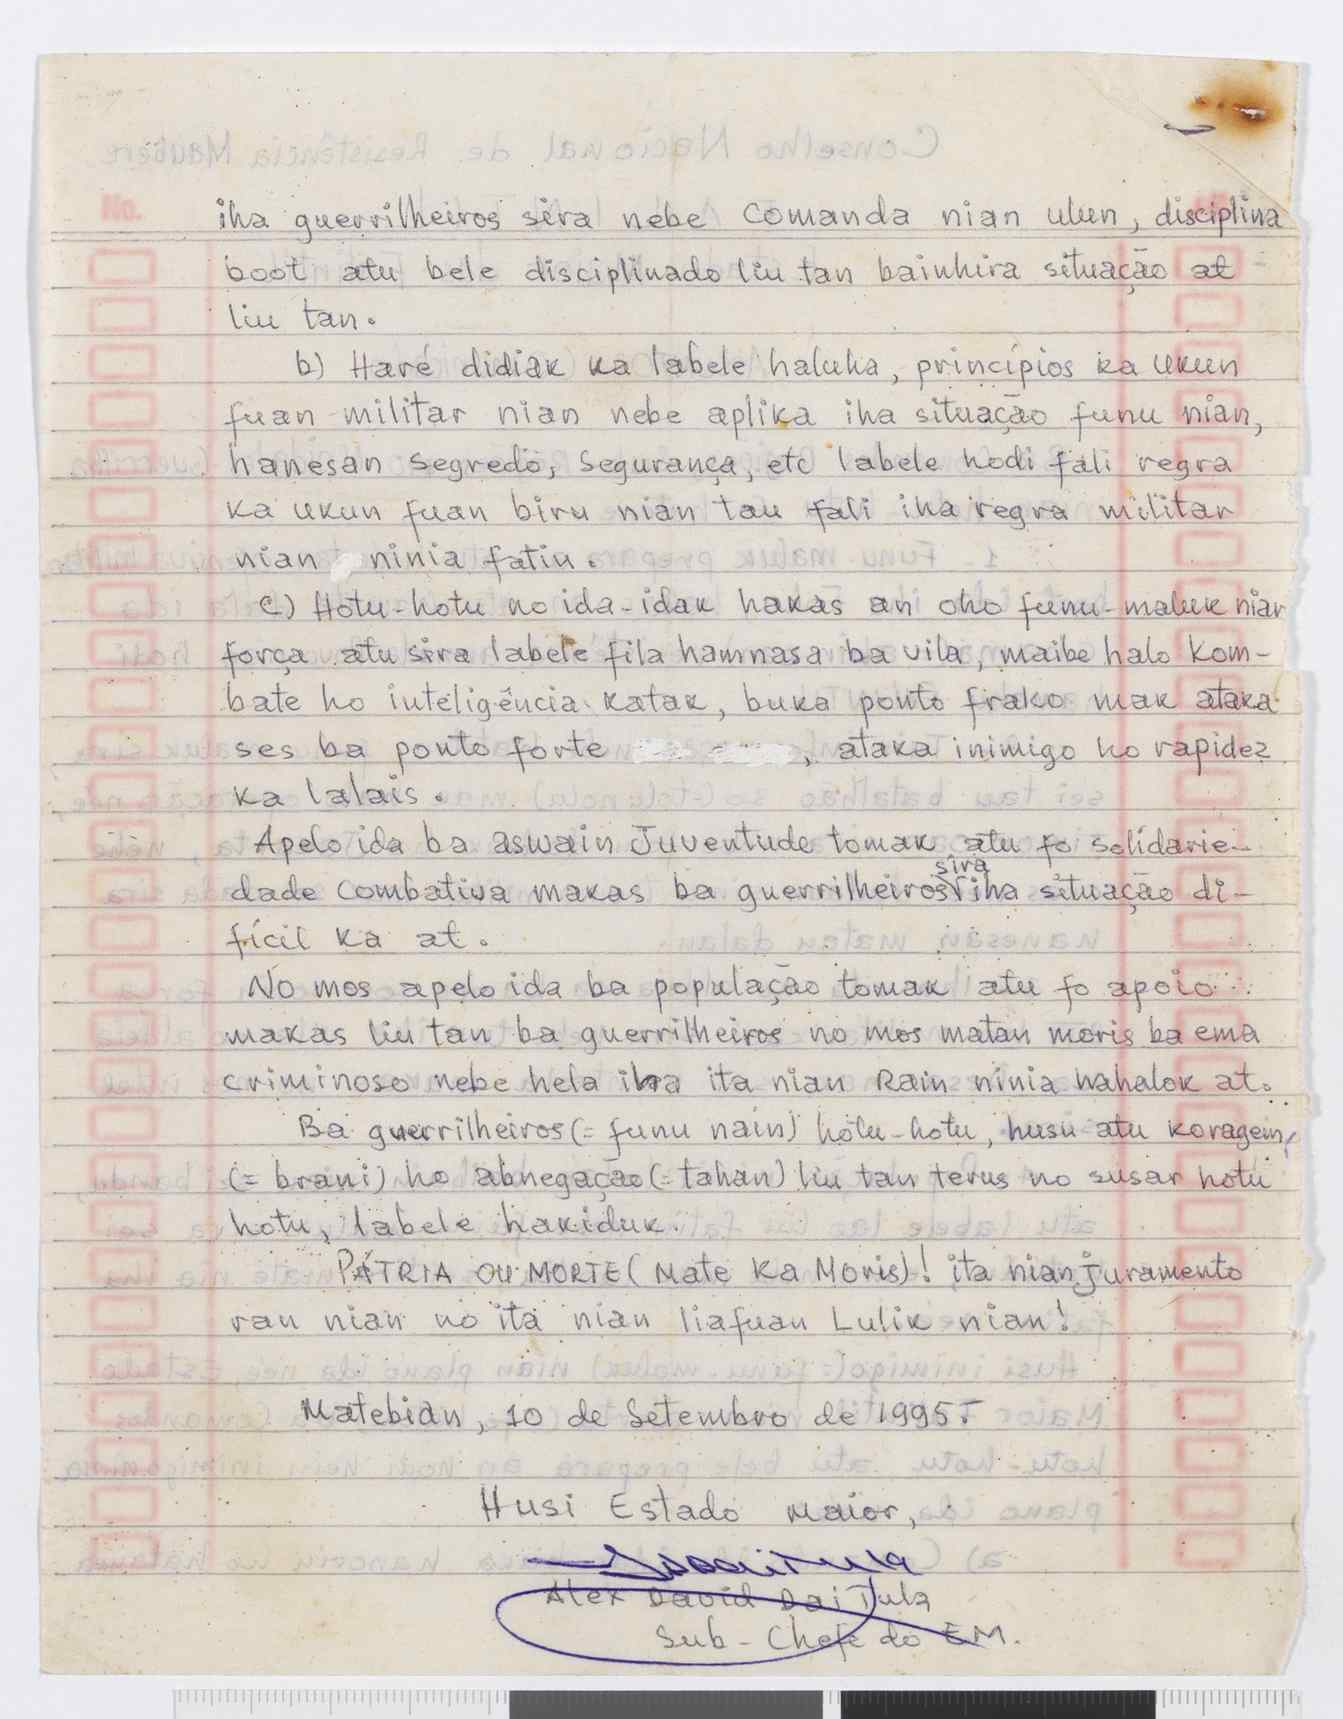 No.
iha guerrilheiros sira nebe Comanda nian ulun, disciplina
boot atu bele disciplinado liu tan bainhira situação at
liu tan.
b) Haré didiak ka labele haluha, princípios ka ukun
fuan militar nian nebe aplika iha situação funu nian,
hanesan segredo, segurança, etc labele hodi fali regra
ka ukun fuan biru nian tau fali iha regra militar
nian ninia fatin.
c) Hotu-hotu no ida-idak hakas an oho funu-maluk nian
força atu sira labele fila hamnasa ba vila, maibe halo kom-
bate ho inteligência katak, buka ponto frako mak ataka
ses ba ponto forte , ataka inimigo ho rapidez
ka lalais.
Apelo ida ba aswain Juventude tomak atu fo solidarie-
dade combativa makas ba guerrilheiros sira iha situação di-
fícil ka at.
No mos apelo ida ba população tomak atu fo apoio
makas liu tan ba guerrilheiros no mos matan moris ba ema
criminoso nebe hela iha ita nian Rain ninia hahalok at.
Ba guerrilheiros (= funu nain) hotu-hotu, husu atu koragem,
(= brani) ho abnegação (= tahan) liu tan terus no susar hotu
hotu, labele hakiduk.
PÁTRIA OU MORTE (Mate Ka Moris)! ita nian juramento
ran nian no ita nian liafuan Lulik nian!
Matebian, 10 de Setembro de 1995.
Husi Estado Maior,
Alex David DaiTula
Sub-Chefe do EM.